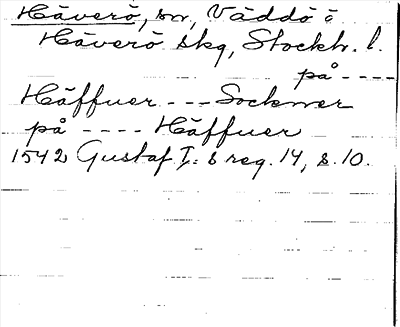 Häverö, sn, Väddö o
Häverö skg, Stockh. l.
på - - - -
Häffuer - - - Sockner
på - - - - Häffuer
1542 Gustaf I:s reg. 14, s. 10.